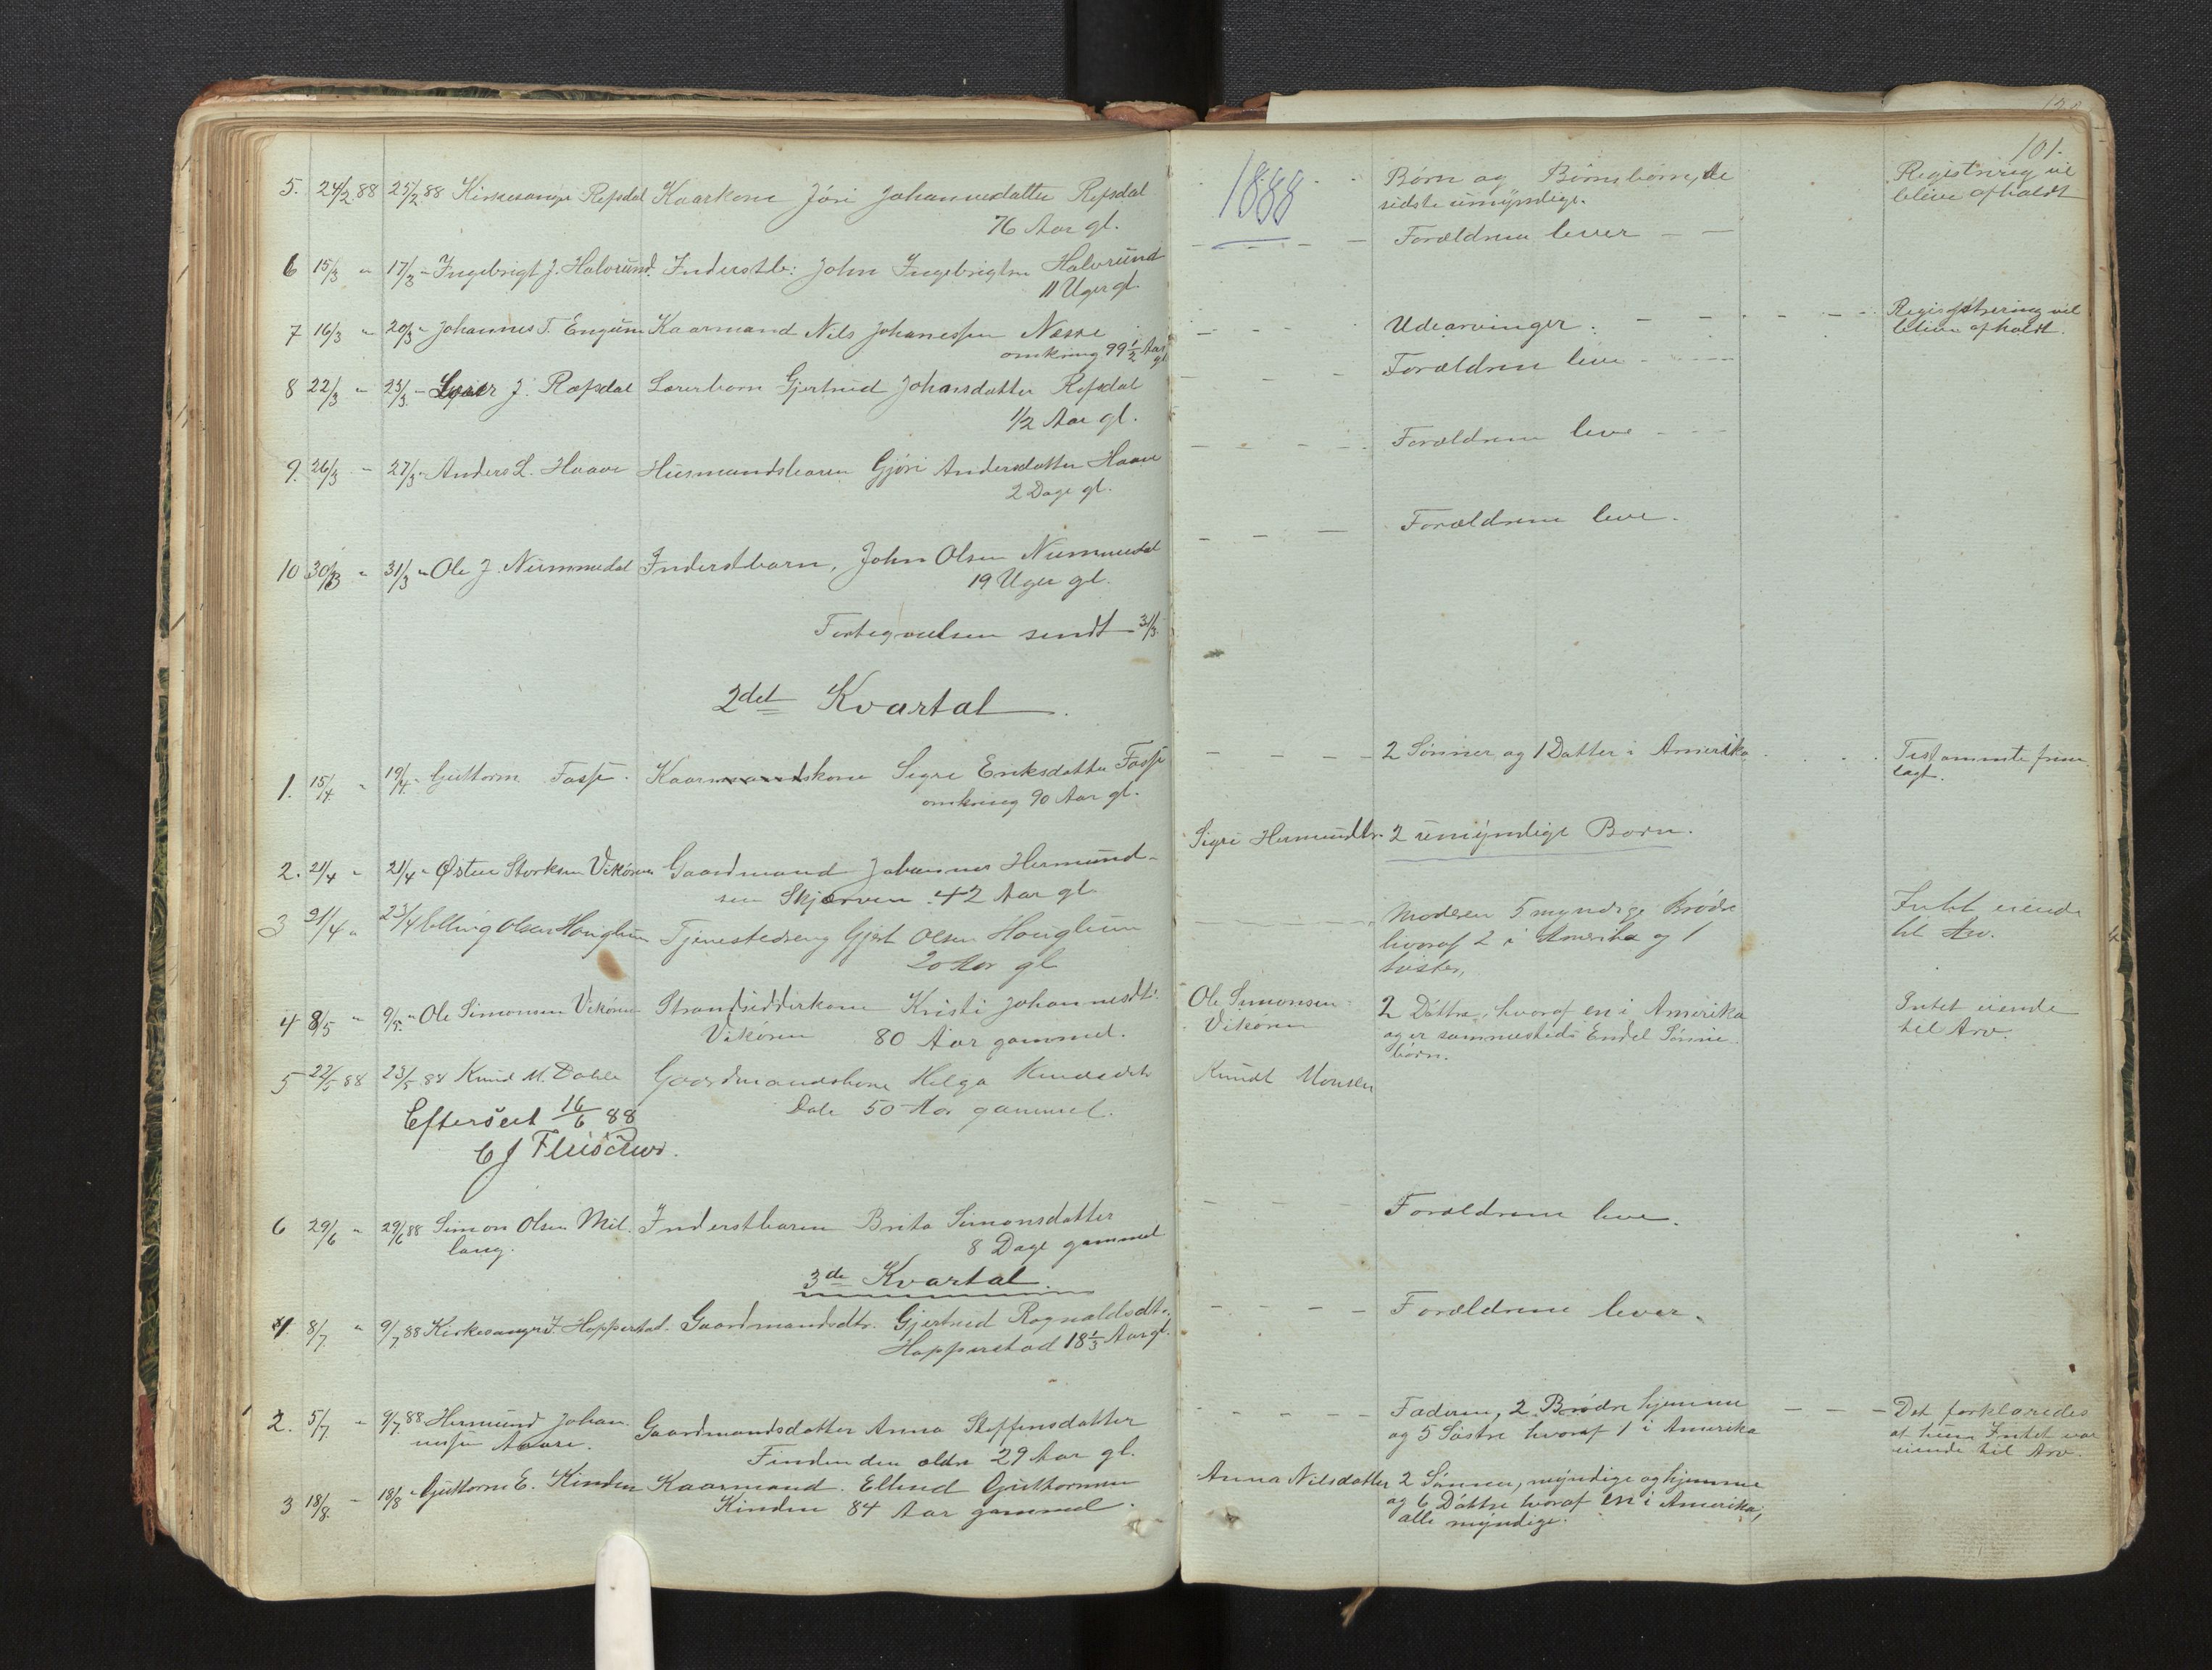 5. 24/2 88 25/2 88 Kirkesanger Refsdal Kaarkone Jöri Johannesdatter Refsdal
76 Aar gl.
6 15/3 " 17/3 - Ingebrigt J. Halvrund. Inderstb: John Ingebrigtsen Halvrund
11 Uger gl.
7 16/3 " 20/3 " Johannes T. Engum Kaarmand Nils Johanessen Nesse
omkring 99 1/2 Aar
gl
8 22/3 " 23/3 - Lærer J. Refsdal Lærerbarn Gjertrud Johansdatter Refsdal
1/2 Aar gl.
9. 26/3 - 27/3 - Anders L. Haave Husmandsbarn Gjöri Andersdatter Haave
2 Dage gl.
10 30/3 " 31/3 " Ole J. Nummedal Inderstbarn, John Olsen Nummedal
19 Uger gl.
Fortegnelsen sendt 31/3.
2det Kvartal
1. 15/4 " 19/4. - Guttorm Fosse. Kaarmandskone Segre Eriksdatter Fosse
omkring 90 Aar gl.
2. 21/4 " 21/4 - Østen Storksen Vikören Gaardmand Johannes Hermund-
sen Skjærven. 42 Aar gl
3 21/4 " 23/4 Elling Olsen Hönglum Tjenestedreng Gjert Olsen Hönglum
20 Aar gl
4 8/5 " 9/5. " Ole Simonsen Vikören Strandsidderkone Kristi Johannesdtr.
Vikören 80 Aar gammel.
5 22/5 88 23/5 88 Knud M. Dahle Gaardmandskone Helga Knudsdtr
Dale 50 Aar gammel.
Efterseet 16/6 88
C J Fleischer.
6 29/6 " 29/6 88 Simon Olsen Mel- Inderstbarn Brita Simonsdatter
lang. 8 Dage gammel
3de Kvartal.
1 8/7 " 9/7. 88 Kirkesanger J. Hopperstad. Gaardmandsdtr. Gjertrud Rognaldsdtr.
Hopperstad 18 1/3 Aar gl.
2. 5/7 " 9/7 88 Hermund Johan- Gaardmandsdatter Anna Steffensdatter
nessen Aaare. Finden den ældre 29 Aar gl.
3 18/8. - 18/8 " Guttorm E. Kinden Kaarmand. Ellend Guttormsen
Kinden 84 Aar gammel.
101.
1888
Börn og Börnebörn, de
sidste umyndige.
Registrering vil
blive afholdt
Forældrene lever
Udearvinger.
Registrering vil
blive afholdt.
Forældrene leve
Forældrene leve
Forældrene leve.
2 Sönner og 1 Datter i Amerika
Testamente frem-
lagt.
Sigri Hermundtr. 2 umyndige Born.
Moderen 5 myndige Brödre
hvoraf 2 i Amerika og 1
Söster,
Intet eiende
til Arv.
Ole Simonsen
Vikören
2 Döttre, hvoraf en i Amerika
og er sammesteds Endel Sönne-
börn.
Intet eiende
til Arv.
Knudt Monsen
Forældrene leve.
Forældrene lever.
Faderen, 2 Brödre hjemme
og 5 Söstre hvoraf 1 i Amerika
Det forklaredes
at hun Intet var
eiende til Arv.
Anna Nilsdatter 2 Sönner, myndige og hjemme
og 6 Döttre hvoraf en i Amerika,
alle myndige.